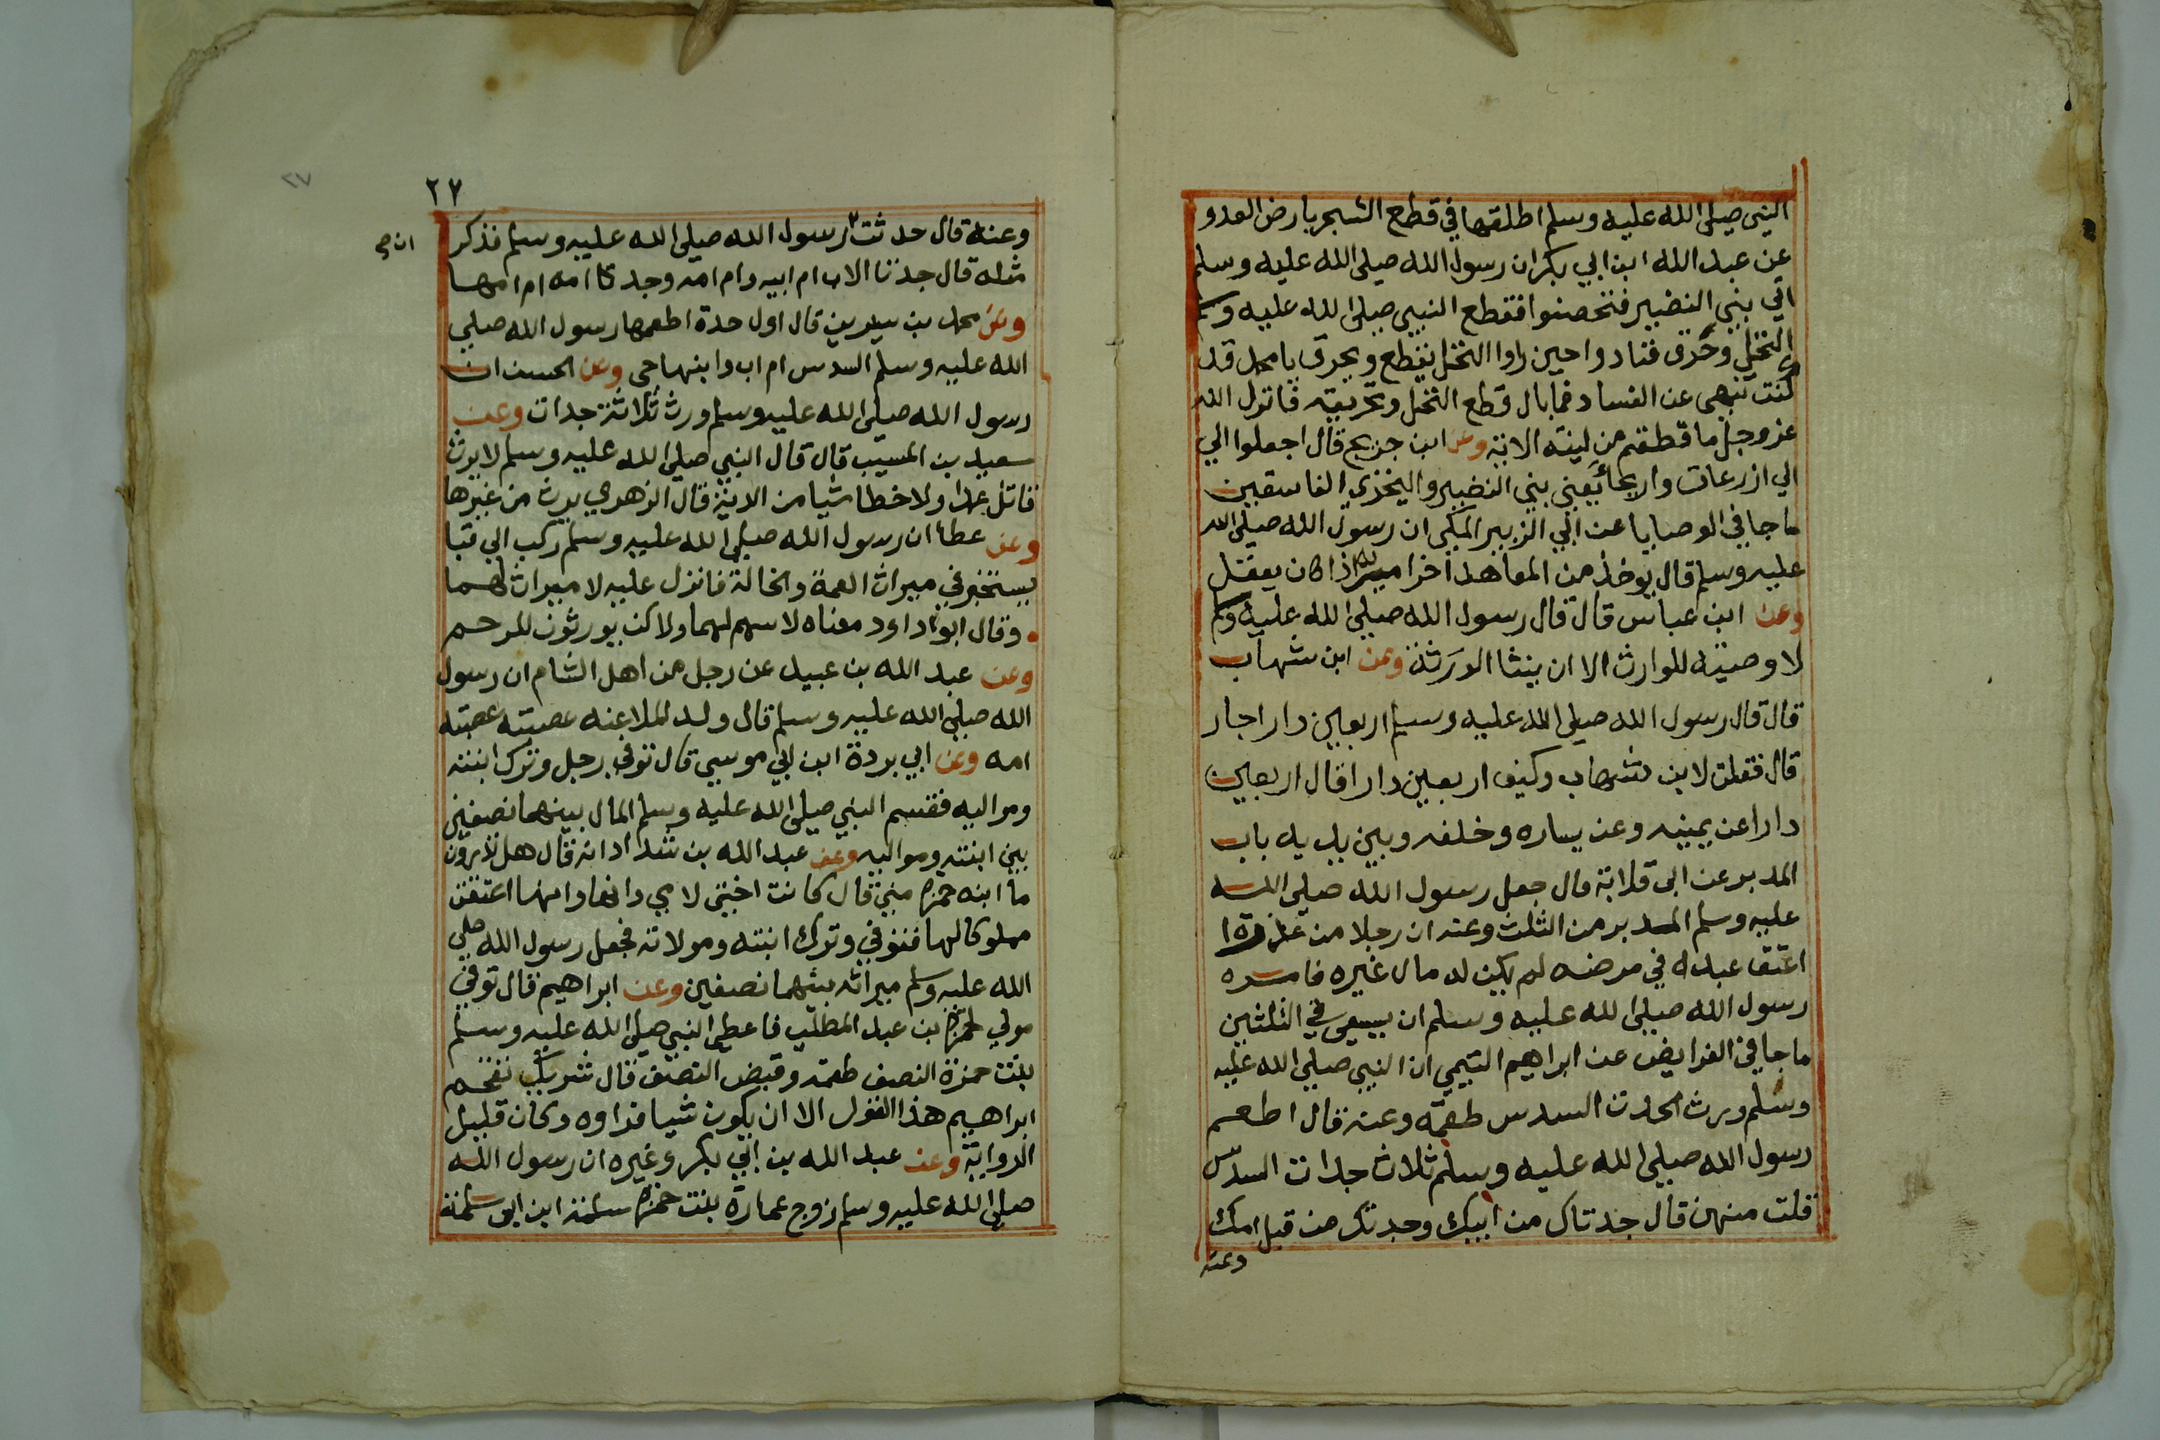 النبي صلى الله عليه وسلم اطلقها في قطع الشجر بارض العدو
عن عبد الله ابن ابي بكر ان رسول الله صلى الله عليه وسلم
اتي بني النضير فتحصنوا فقطع النبي صلى الله عليه وسلم
النخل وحرق فنادوا حين راوا النخل يقطع ويحرق يا محمد قد
كنت تنهى عن الفساد فما بال قطع النخل وتحريقه فانزل الله
عز وجل ما قطعتم من لينه الاية وعن ابن جريج قال اجعلوا الي
الي ازرعات واريحا يعني بني النضير واليخزي الفاسقين
ما جا في الوصايا عن ابي الزبير المكي ان رسول الله صلى الله
عليه وسلم قال يوخذ من المعاهد اخر اميره اذا كان يعقل
وعن ابن عباس قال قال رسول الله صلى الله عليه وسلم
لا وصية للوارث الا ان يشا الورثة وعن ابن شهاب
قال قال رسول الله صلى الله عليه وسلم اربعين دارا جار
قال فقلت لابن شهاب وكيف اربعين دارا قال اربعين
دارا عن يمينه وعن يساره وخلفه وبين يديه باب
المدبر عن ابي قلابة قال جعل رسول الله صلى الله
عليه وسلم المدبر من الثلث وعنه ان رجلا من عذرة ا
اعتق عبد له في مرضه لم يكن له مال غيره فامره
رسول الله صلى الله عليه وسلم ان يسعى في الثلثين
ما جا في الفرايض عن ابراهيم التيمي ان النبي صلى الله عليه
وسلم ورث الجدت السدس طعمة وعنه قال اطعم
رسول الله صلى الله عليه وسلم ثلاث جدات السدس
قلت منهن قال جدتاك من ابيك وجدتك من قبل امك
وعنه
٢٧
وعنه قال حدثت رسول الله صلى الله عليه وسلم فذكر
ان ص
مثله قال جدتا الاب ام ابيه وام امه وجدتا امه ام امها
وعن محمد بن سيرين قال اول جدة اطعمها رسول الله صلى
الله عليه وسلم السدس ام اب وابنها حي وعن الحسن ان
رسول الله صلى الله عليه وسلم ورث ثلاثة جدات وعن
سعيد بن المسيب قال قال النبي صلى الله عليه وسلم لا يرث
قاتل عمدا ولا خطا شيا من الدية قال الزهري يرث من غيرها
وعن عطا ان رسول الله صلى الله عليه وسلم ركب الي قبا
يستخير في ميراث العمة والخالة فانزل عليه لا ميراث لهما
وقال ابو داود معناه لا سهم لهما ولا كن يورثون للرحم
وعن عبد الله بن عبيد عن رجل من اهل الشام ان رسول
الله صلى الله عليه وسلم قال ولد الملاعنه عصبته عصبة
امه وعن ابي بردة ابن ابي موسي قال توفي رجل وترك ابنته
ومواليه فقسم النبي صلى الله عليه وسلم المال بينهما نصفين
بين ابنته ومواليه وعن عبد الله بن شداد انه قال هل تدرون
ما ابنه حمزه مني قال كانت اختي لامي وانها وانها اعتقت
مملوكا لها فتوفي وترك ابنته ومولاته فجعل رسول الله صلى
الله عليه وسلم ميراثه بينهما نصفين وعن ابراهيم قال توفي
مولي لحمزة بن عبد المطلب فاعطى النبي صلى الله عليه وسلم
بنت حمزة النصف طعمة وقبض النصف قال شريك تقحم
ابراهيم هذا القول الا ان يكون شيا فرواه وكان قليل
الرواية وعن عبد الله بن ابي بكر وغيره ان رسول الله
صلى الله عليه وسلم زوج عمارة بنت حمزه سلمة ابن ابي سلمة